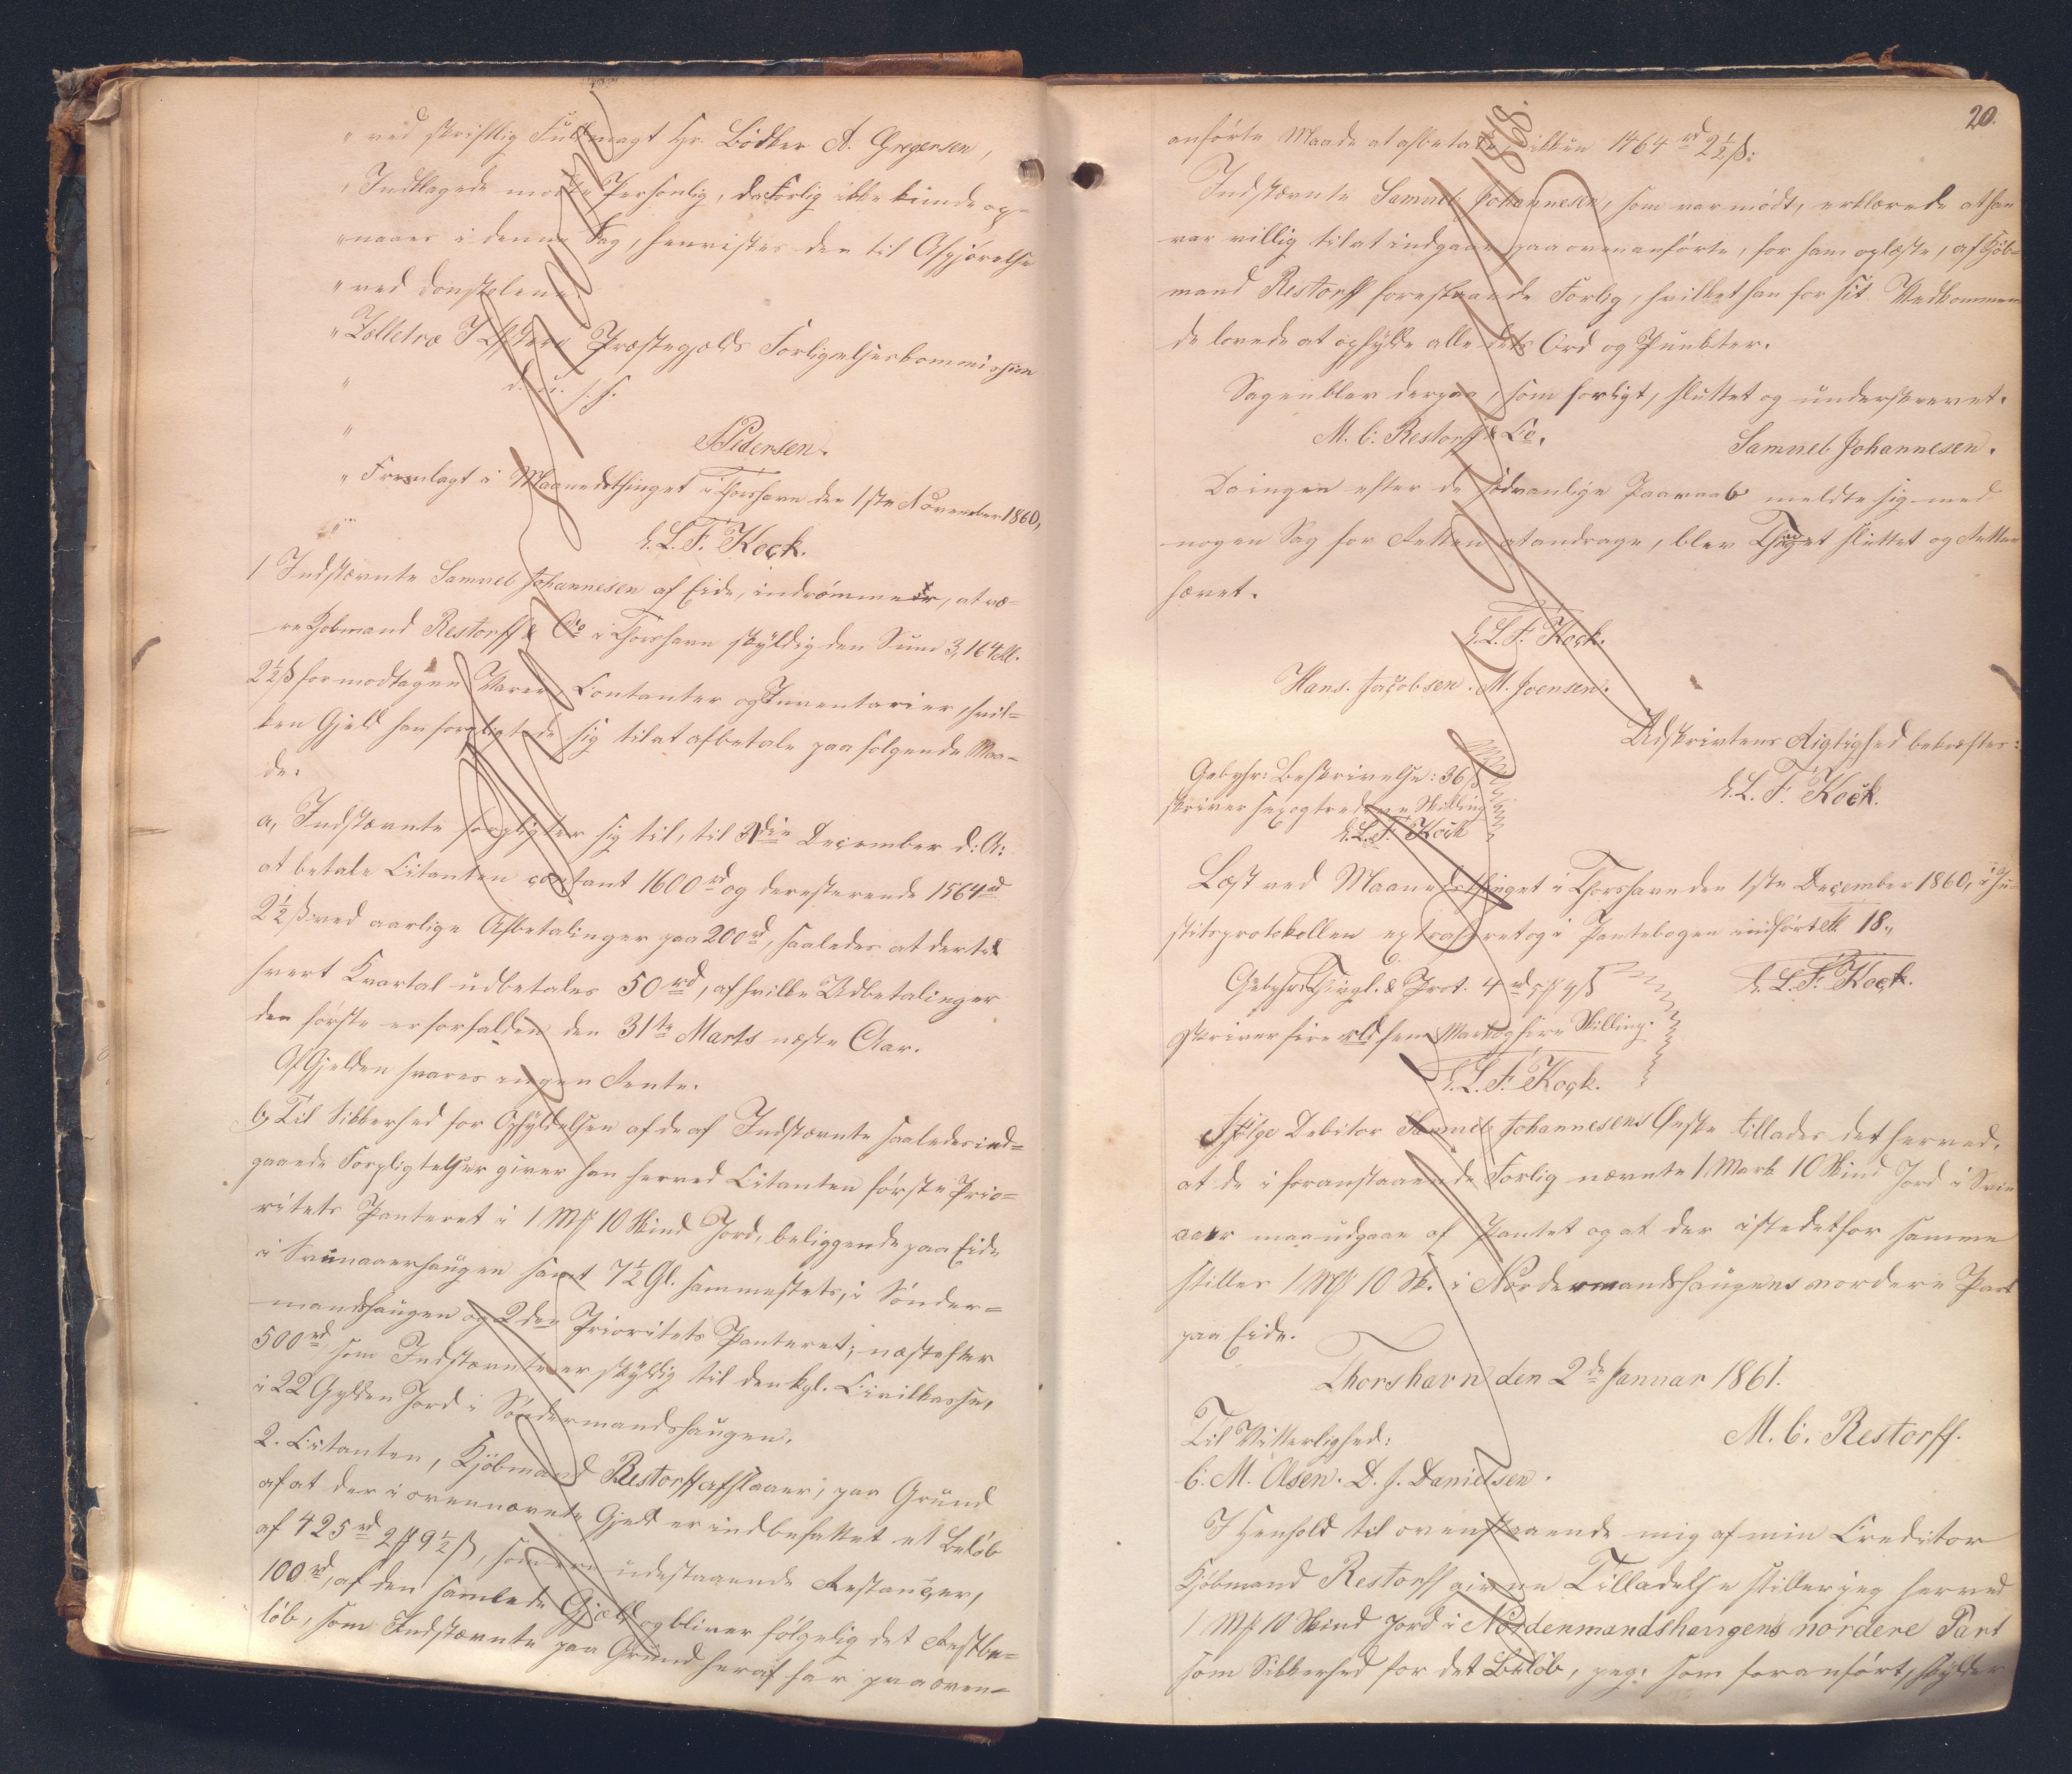 " ved skriftlig Fuldmagt Hr. Bödker A. Gregersen,
" Indklagede mødte Personlig, da Forlig ikke kunde op-
" naaes i denne Sag, henvistes den til Afgjørelse
" ved Domstolene.
" Zølletræ I Østerø Præstegjelds Forligelseskommission
" d. u. s. s.
" Pidersen.
" Fremlagt i Maanedsthinget i Thorshavn den 1ste November 1860,
" E. L. F. Kock.
1 Indstævnte Samuel Johannesen af Eide, indrömmer, at væ-
re Kjøbmand Restorff & Co i Thorshavn skyldig den Sum 3,164 rd.
2½ ß for modtagen Varer, Contanter og Inventarier, hvil-
ken Gjeld han forpligtede sig til at afbetale paa følgende Maa-
de:
a, Indstævnte forpligter sig til, til 31die December d: A:
at betale Citanten contant 1600 rd og deresterende 1564 rd
2½ ß ved aarlige Afbetalinger paa 200 rd, saaledes at dertil
hvert Kvartal udbetales 50 rd, af hvilke Udbetalinger
den første er forfalden den 31te Marts næste Aar.
Af Gjelden svares ingen Rente.
b, Til Sikkerhed for Opfyldelsen af de af Indstævnte saaledes ind-
gaaede Forpligtelser giver han herved Citanten første Prio-
ritets Panteret i 1 Mk 10 Skind Jord, beliggende paa Eide
i Svinaaerhaugen samt 7½ Gl. sammestets, i Sönder-
mandshaugen og 2den Prioritets Panteret, næstefter
500 rd som Indstævnte er skyldig til den kgl. Civilkasse,
i 22 Gylden Jord i Söndermandshaugen.
2. Citanten, Kjöbmand Restorff afslaaer, paa Grund
af at der i ovennævnte Gjeld er indbefattet et Belöb
af 425 rd 2 mk 9½ ß, som ere udestaaende Restancer,
100 rd, af den samlede Gjæld og bliver følgelig det Restbe-
löb, som Indstævnte paa Grund heraf har paa oven-
20.
anførte Maade at afbetale, ikkun 1464 rd 2½ ß:
Indstævnte Samuel Johannesen, som var mödt, erklærede at han
var villig til at indgaae paa ovenanførte, for ham oplæste, af Kjöb-
mand Restorff forestaaende Forlig, hvilket han for sit Vedkommen-
de lovede at opfylde alle dets Ord og Punkter.
Sagen blev derpaa, som forligt, sluttet og underskrevet.
M. C. Restorff & Co. Samuel Johannesen.
Da ingen efter de sædvanlige Paaraab meldte sig med
nogen Sag for Retten at andrage, blev Thinget sluttet og Retten
hævet.
E. L. F. Kock.
Hans. Jacobsen. M. Joensen.
Udskriftens Rigtighed bekræftes:
E. L. F. Kock.
Gebyhr: Beskrivelse: 36 ß
skriver sexogtredive Skilling
E. L. F. Kock
Læst ved Maanedsthinget i Thorshavn den 1ste December 1860, i Ju-
stitsprotokollen extraheret og i Pantebogen indført № 18.,
E. L. F. Kock.
Gebyhr: Thingl. & Prot. 4 rd 5 mk 4 ß
skriver fire rd fem Mark og fire Skilling.
E. L. F. Kock.
Ifølge Debitor Samuel Johannesens Ønske tillades det herved,
at de i foranstaaende Forlig nævnte 1 Mark 10 Skind Jord i Svin-
aaer maa udgaae af Pantet og at der istedetfor samme
stilles 1 Mk 10 Sk. i Nordenmandshaugens nordere Part
paa Eide.
Thorshavn den 2de Januar 1861.
M. C. Restorff.
Til Vitterlighed:
C. M. Olsen. D. J. Danielsen.
I Henhold til ovenstaaende mig af min Creditor
Kjöbmand Restorff givne Tilladelse stiller jeg herved
1 Mk 10 Skind Jord i Nordenmandshaugens nordere Part
som Sikkerhed for det Belöb, jeg, som foranført, skylder